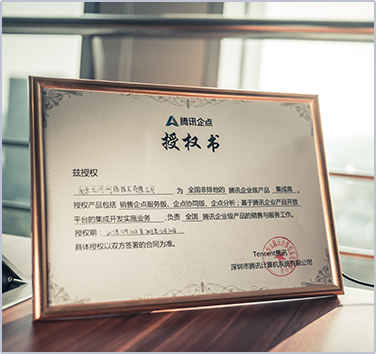 腾讯企点
授权书
兹授权
网络技术有限公司 为 全国非排他的 腾讯企业级产品 集成商,
授权产品包括 销售企点服务版、企点协同版、企点分析;基于腾讯企业产品开放
平台的集成开发实施业务 ,负责 全国 腾讯企业级产品的销售与服务工作。
授权期:
具体授权以双方签署的合同为准。
Tencent腾讯
深圳市腾讯计算机系统有限公司